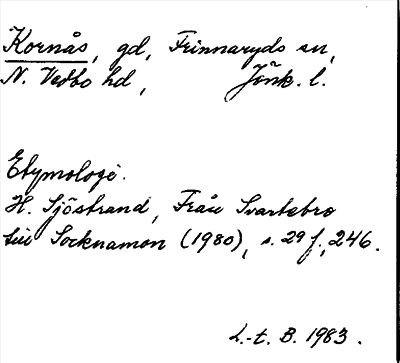 Kornås, gd, Frinnaryds sn,
N. Vedbo hd, Jönk. l.
Etymologi.
H. Sjöstrand, Från Svartebro
till Socknamon (1980), s. 29 f., 246.
L.-t. B. 1983.